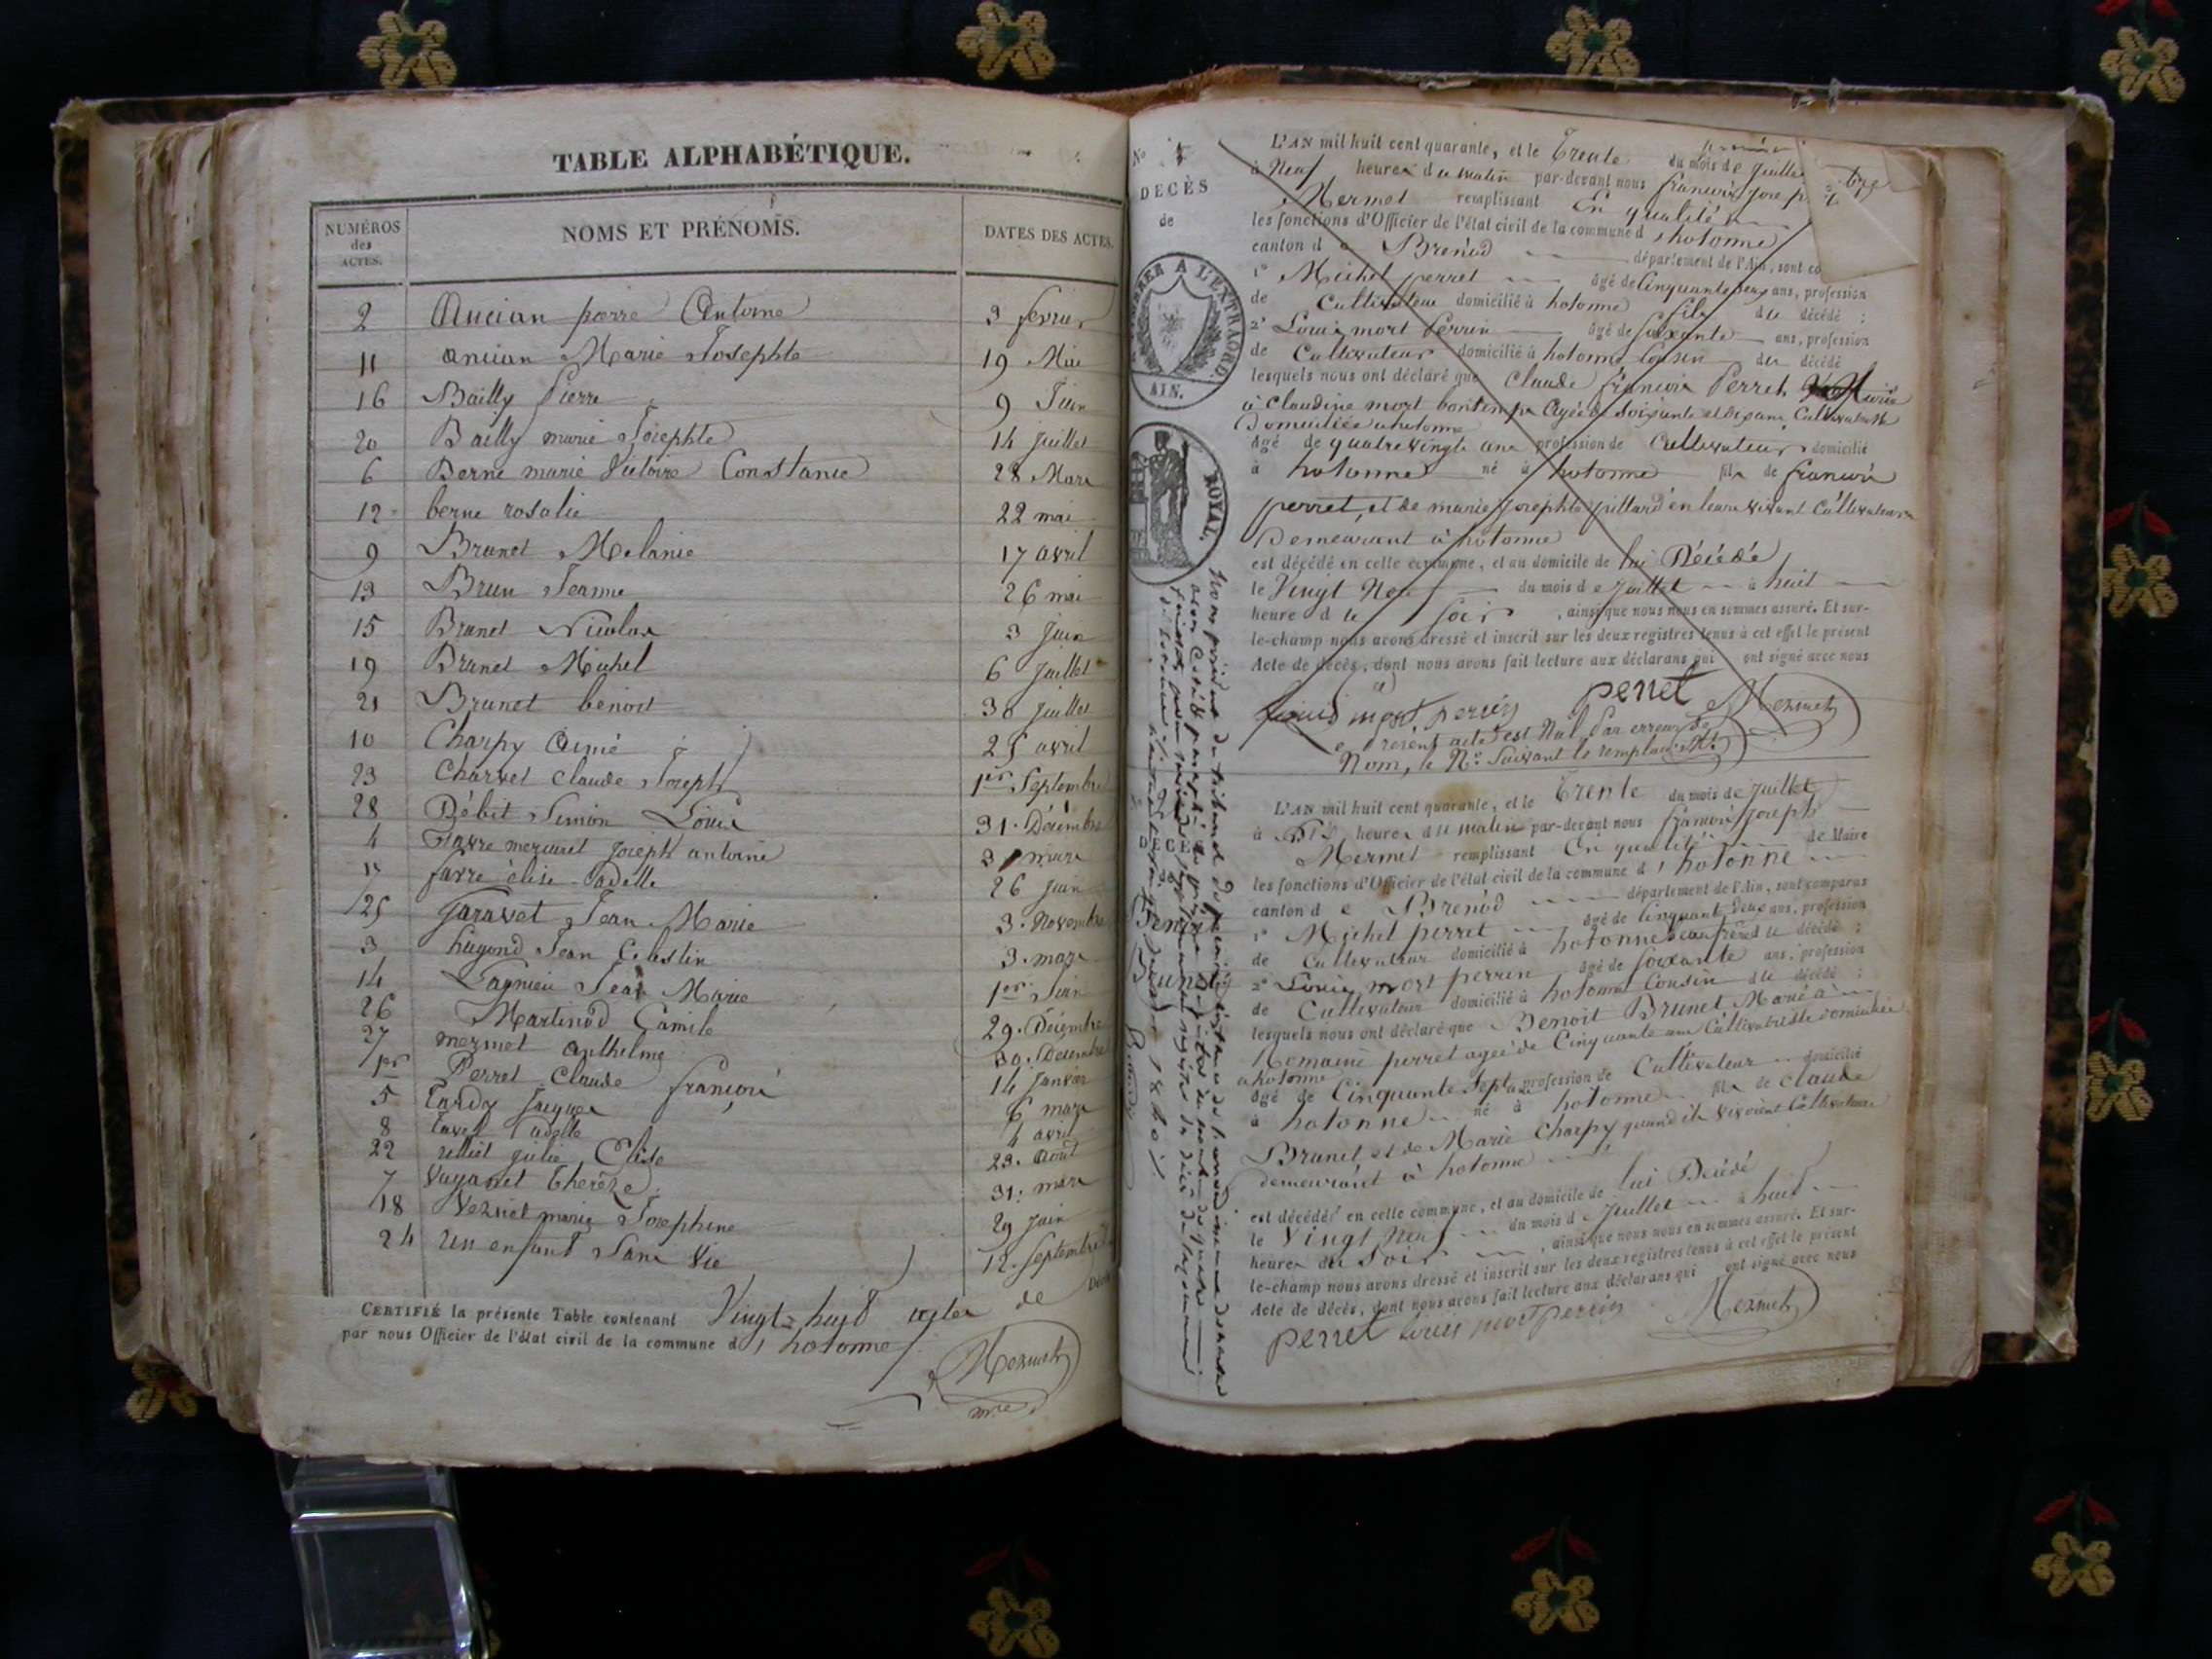 TABLE ALPHABÉTIQUE.
NUMÉROS des ACTES.
NOMS ET PRÉNOMS.
DATES DES ACTES.
2 Ancian pierre Antoine 3 fevrier
11 ancian Marie Josephte 19 Mai
16 Bailly Pierre 9 Juin
20 Bailly marie Josephte 14 juillet
6 Berne marie Victoire Constance 28 Mars
12 berne rosalie 22 mai
9 Brunet Melanie 17 avril
13 Brun Jeanne 26 mai
15 Brunet Nicolas 3 Juin
19 Brunet Michel 6 juillet
21 Brunet benoit 30 juillet
10 Charpy Aimé 25 avril
23 Charvet Claude Joseph 1er Septembre
28 Débit Simon Louis 31. Décembre
4 Favre mercuret joseph antoine 3 mars
17 favre élise adelle 26 juin
25 Jean Marie 3. Novembre
3 hugond Jean Celestin 3. mars
14 Lagnieu Jean Marie 1er Juin
26 Martinod Camile 29. Décembre
27 mermet anthelme 30. Decembre
1er Perret Claude françois 14 Janvier
5 Tardy Jacques 6 mars
8 adelle 4 avril
22 julie Elise 23. août
7 Thérèze 31. mars
18 marie Josephine 29 juin
24 Un enfant Sans Vie 12. Septembre
CERTIFIÉ la présente Table contenant Vingt-huit actes de Décès
par nous Officier de l'état civil de la commune d'hotonne
Mermet
mre
No
DECÈS
de
TIMBRER A L'EXTRAORD.
AIN.
ROYAL.
L'AN mil huit cent quarante, et le Trente du mois de Juillet
à Neuf heures du matin par-devant nous françois Josep
Mermet remplissant En qualité
les fonctions d'Officier de l'état civil de la commune d'hotonne
canton de Brénod département de l'Ain, sont co
1° Michel perret âgé de Cinquante deux ans, profession
de Cultivateur domicilié à hotonne fils du décédé ;
2° Louis mort Perrin âgé de soixante ans, profession
de Cultivateur domicilié à hotonne Cousin du décédé
lesquels nous ont déclaré que Claude françois Perret Marié
à Claudine mort bontemps Agée de Soixante et dix ans, Cultivatrice
Domiciliée a hotonne
âgé de quatre vingts ans profession de Cultivateur domicilié
à hotonne né à hotonne fils de françois
perret, et de marie josephte juillard en leurs vivant Cultivateurs
Demeurant à hotonne
est décédé en cette commune, et au domicile de lui Décédé
le Vingt Neuf du mois de Juillet à huit
heure du soir, ainsi que nous nous en sommes assuré. Et sur-
le-champ nous avons dressé et inscrit sur les deux registres tenus à cet effet le présent
Acte de décès, dont nous avons fait lecture aux déclarans qui ont signé avec nous
Louis mort perrin perret Mermet
Le présent acte est Nul Par erreur de
Nom, le N° Suivant le remplace
DÉCÈS
Benoit
Brunet
L'AN mil huit cent quarante, et le Trente du mois de juillet
à heures du matin par-devant nous françois joseph
Mermet remplissant En qualité de Maire
les fonctions d'Officier de l'état civil de la commune d'hotonne
canton de Brénod département de l'Ain, sont comparus
1° Michel perret âgé de Cinquant deux ans, profession
de Cultivateur domicilié à hotonne beau frère du décédé ;
2° Louis mort perrin âgé de soixante ans, profession
de Cultivateur domicilié à hotonne Cousin du décédé ;
lesquels nous ont déclaré que Benoit Brunet Marié à
Romaine perret agée de Cinquante ans Cultivatrice domiciliée
a hotonne
âgé de Cinquante Sept ans profession de Cultivateur domicilié
à hotonne né à hotonne fils de Claude
Brunet et de Marie Charpy quand ils vivoient Cultivateurs
demeurant à hotonne
est décédé en cette commune, et au domicile de lui Décédé
le Vingt Neuf du mois de Juillet à huit
heures du Soir, ainsi que nous nous en sommes assuré. Et sur-
le-champ nous avons dressé et inscrit sur les deux registres tenus à cet effet le présent
Acte de décès, dont nous avons fait lecture aux déclarans qui ont signé avec nous
perret Louis mort perrin Mermet